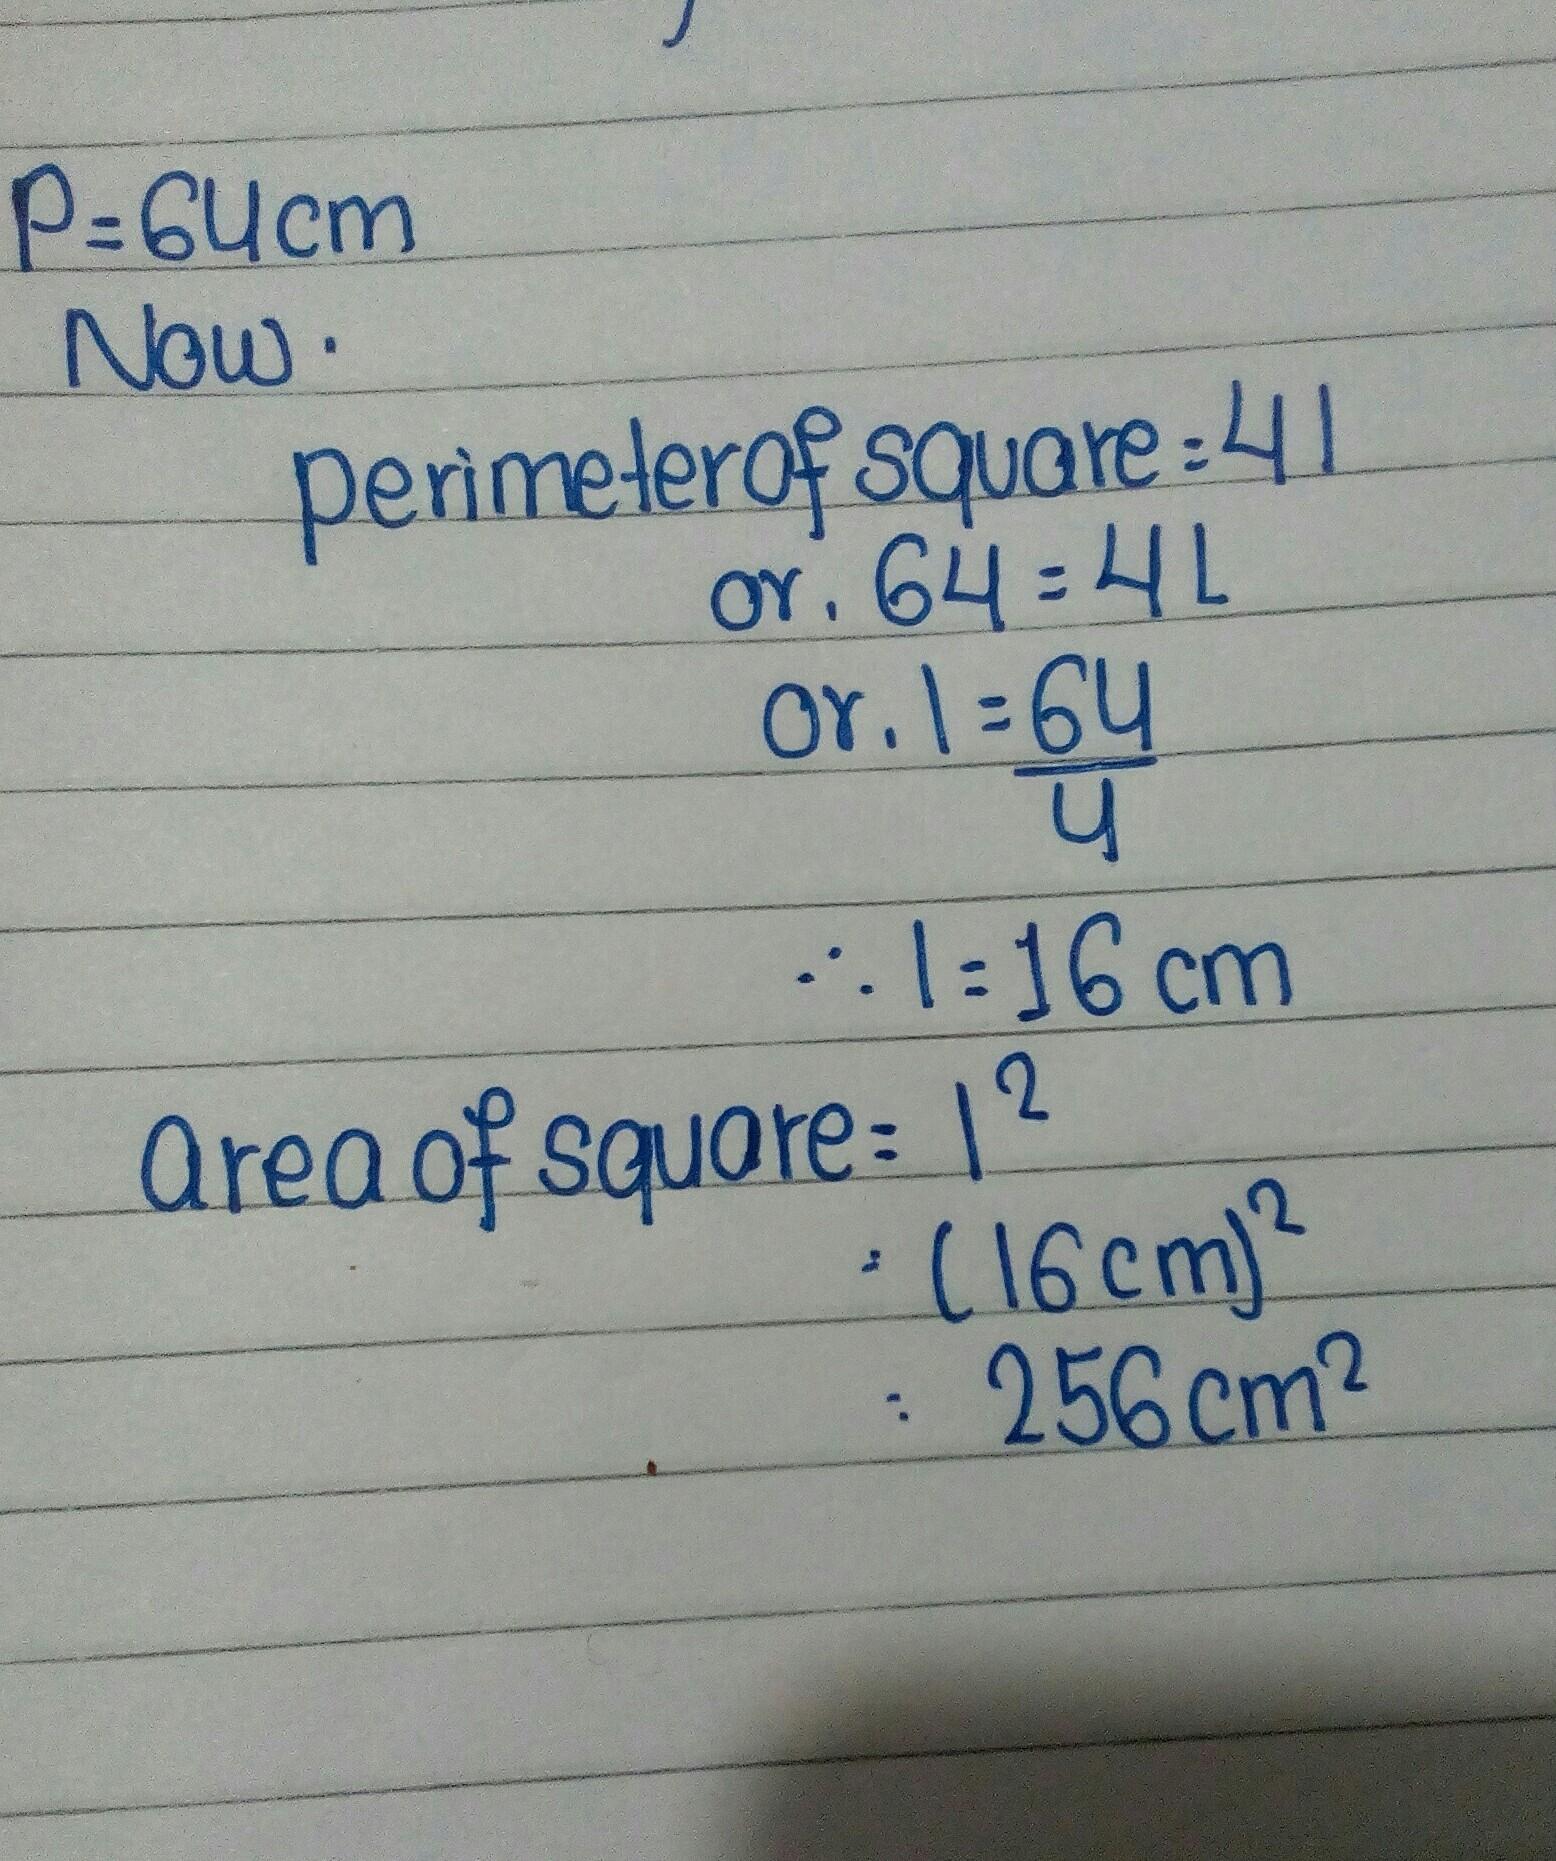 P=64cm
Now.
perimeter of square=4l
or. 64=4L
or. l=64
4
∴ l=16 cm
area of square= l²
=(16cm)²
= 256cm²